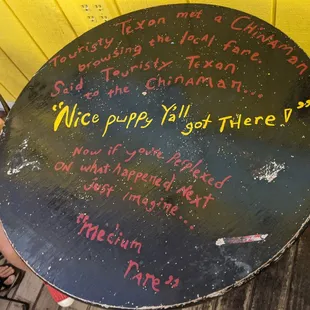 Touristy Texan met a CHINAMAN
browsing the local fare.
Said Touristy Texan
to the CHINAMAN...
"Nice puppy Y'all got THere!"
Now if you're Perplexed
ON what happened Next
Just imagine...
"Mecium
rare"